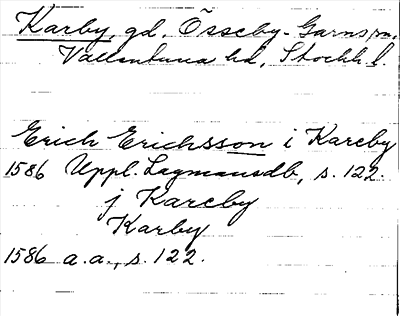 Karby, gd, Össeby-Garns sn,
Vallentuna hd, Stockh. l.
Erich Erichsson i Kareby
1586 Uppl. Lagmansdb, s. 122.
j Kareby
Karby
1586 a.a., s. 122.